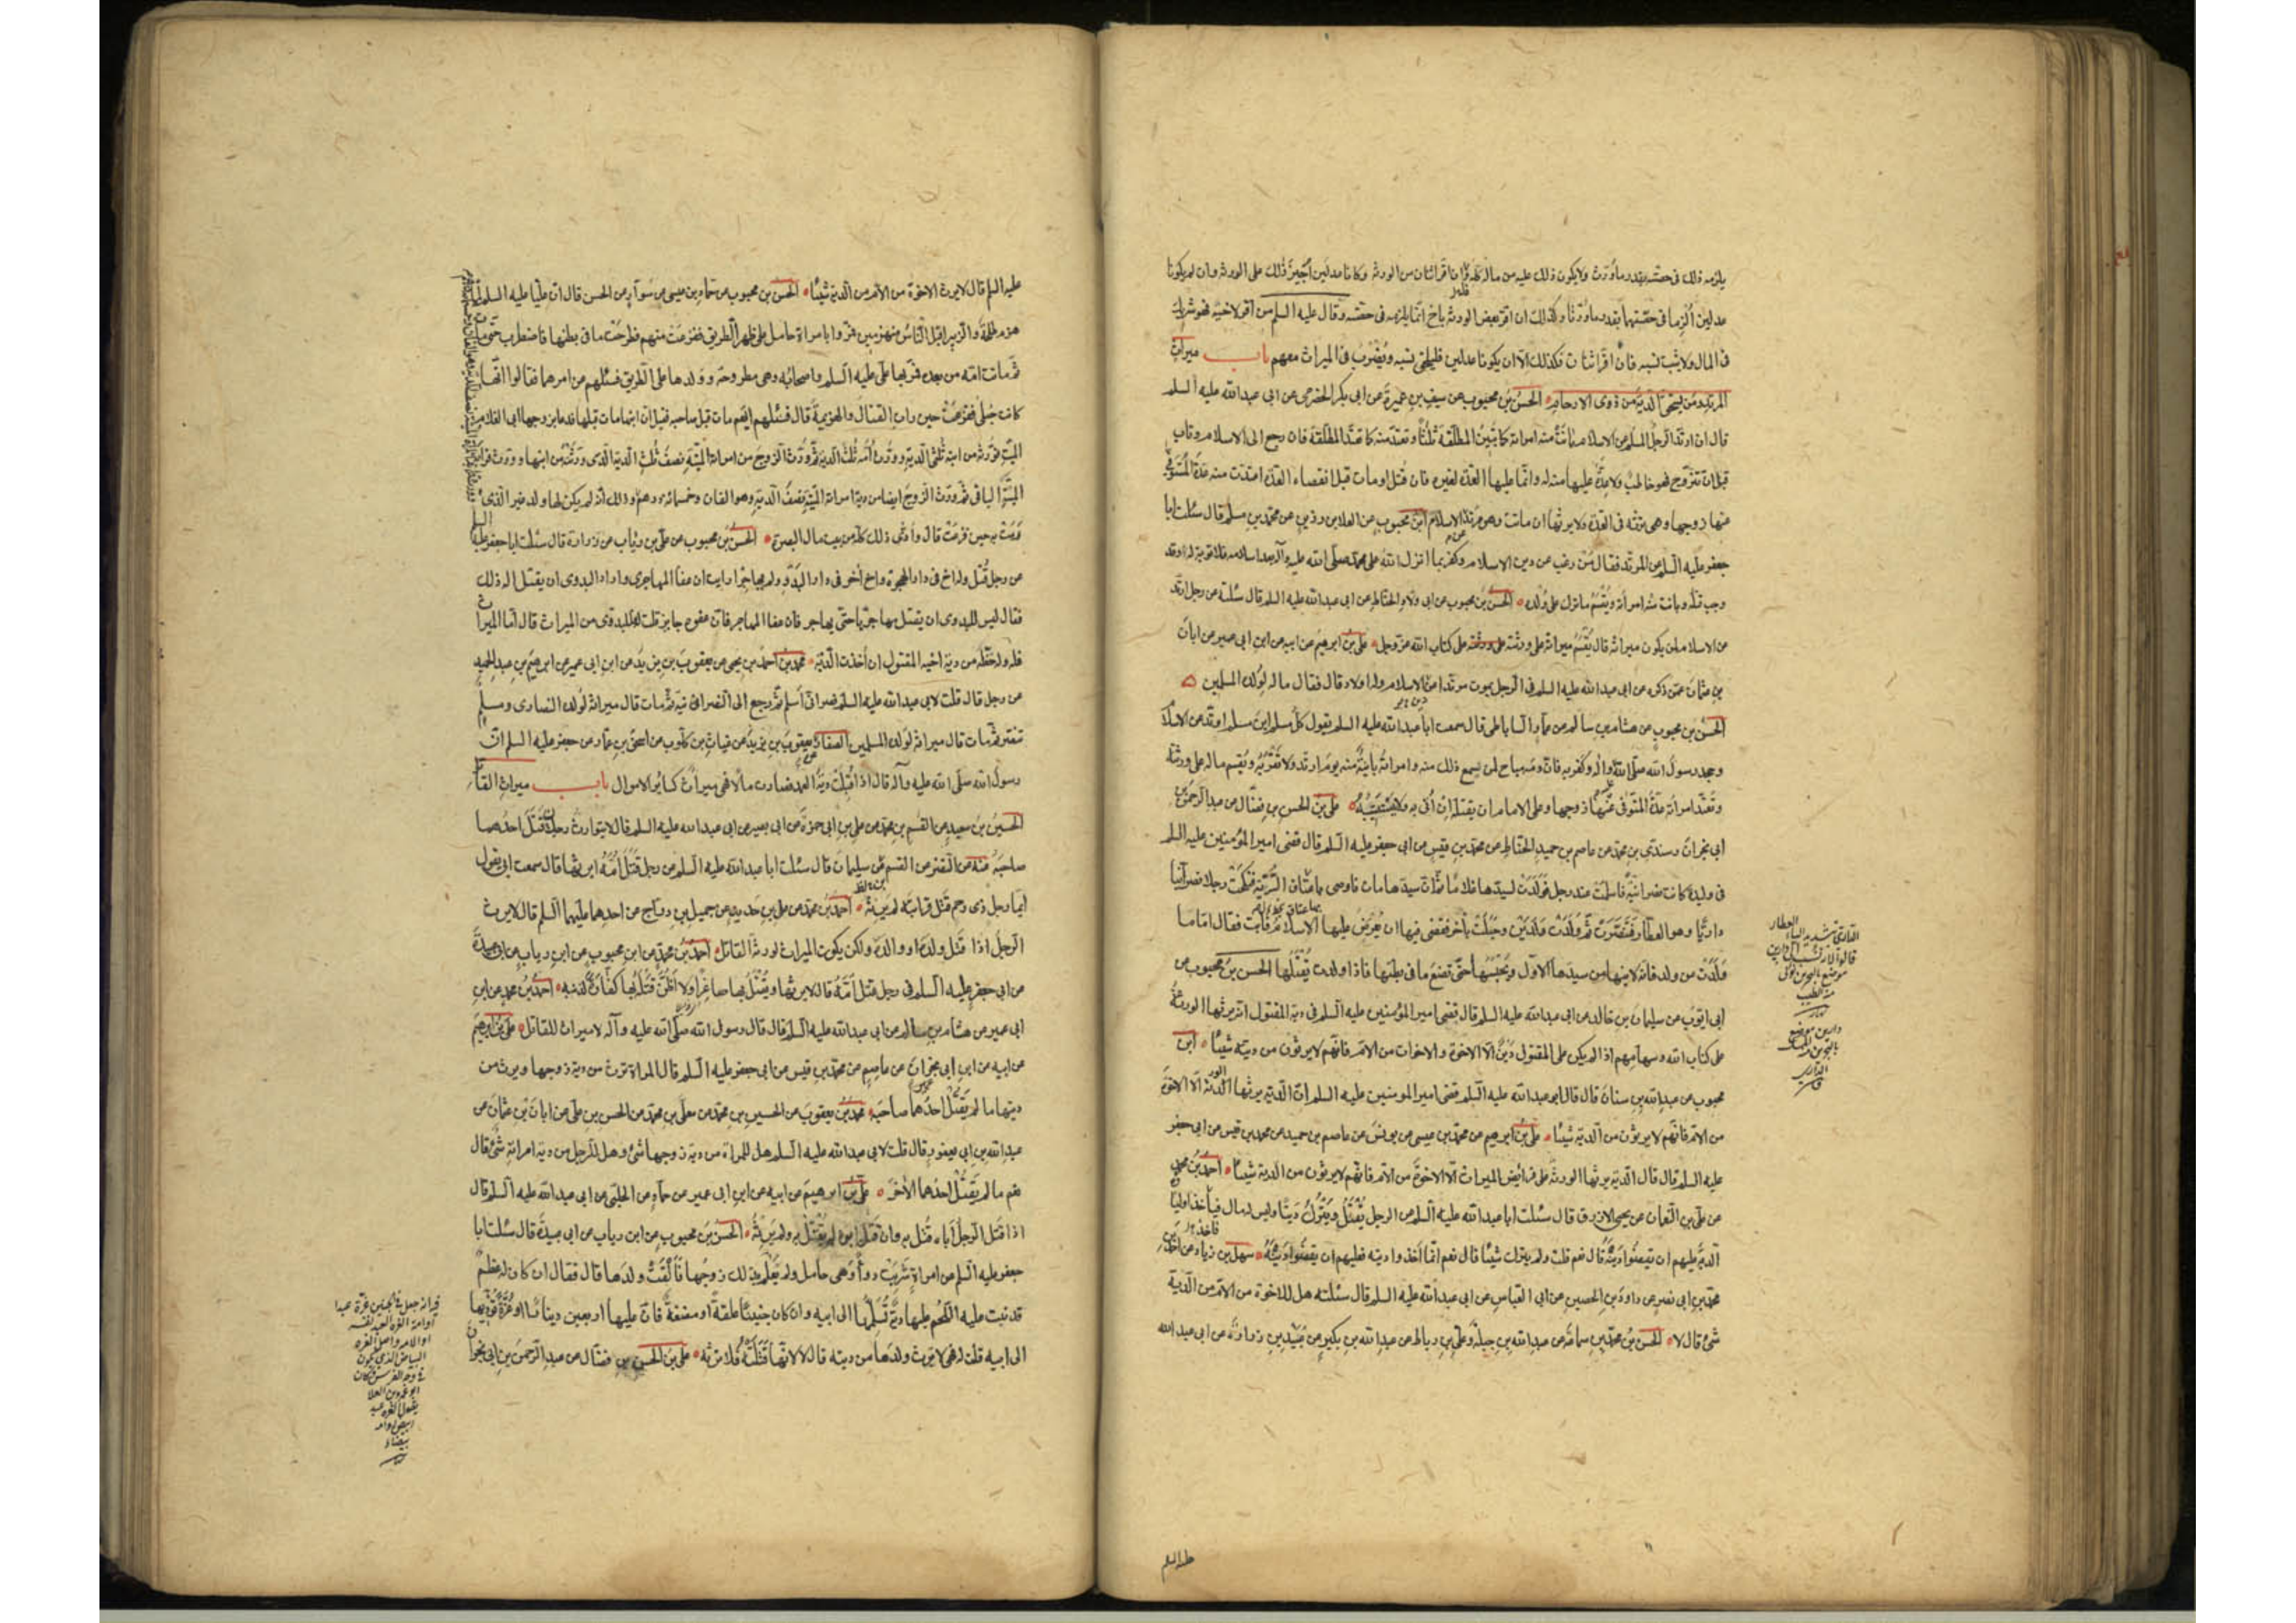 يلزمه ذلك فى حصته بقدر ما ورث ولا يكون ذلك عليه من ماله كله فان اقر اثنان من الورثة وكانا عدلين أجيز ذلك على الورثة وان لم يكونا
عدلين أُلزما فى حصتهما بقدر ما ورثا وكذلك ان اقر بعض الورثة باخ انما يلزمه فى حصته وقال عليه السلم من اقر لاخيه فهو شريك
فى المال ولا يثبت نسبه فان اقر اثنان فكذلك الا ان يكونا عدلين فيلحق نسبه ويُضْرَبُ فى الميراث معهم باب ميراث
المرتد ومن يستحق الدية من ذوى الارحام الحسن بن محبوب عن سيف بن عميرة عن ابى بكر الحضرمى عن ابى عبد الله عليه السلم
قال ان ارتد الرجل المسلم عن الاسلام بانت منه امراته كما تبين المطلقة ثلثا وتعتد منه كما تعتد المطلقة فان رجع الى الاسلام وتاب
قبل ان تتزوج فهو خاطب ولا عدة عليها منه له وانما عليها العدة لغيره فان قتل او مات قبل انقضاء العدة اعتدت منه عدة المتوفى
عنها زوجها وهى ترثه فى العدة ولا يرثها ان ماتت وهو مرتد عن الاسلام ابن محبوب عن العلا بن رزين عن محمد بن مسلم قال سئلت ابا
جعفر عليه السلم عن المرتد فقال من رغب عن دين الاسلام وكفر بما انزل الله على محمد صلى الله عليه وآله بعد اسلامه فلا توبة له وقد
وجب قتله وبانت منه امرأته ويُقْسَمُ ما ترك على وُلده الحسن بن محبوب عن ابى ولاد الحناط عن ابى عبد الله عليه السلم قال سئلته عن رجل ارتد
عن الاسلام لمن يكون ميراثه قال يُقْسَمُ ميراثه على ورثته على كتاب الله عز وجل على بن ابرهيم عن ابيه عن ابن ابى عمير عن ابان
بن عثمان عمن ذكره عن ابى عبد الله عليه السلم فى الرجل يموت مرتدا عن الاسلام وله اولاد قال فقال ماله لولده المسلمين
الحسن بن محبوب عن هشام بن سالم عن عمار الساباطى قال سمعت ابا عبد الله عليه السلم يقول كل مسلم ابن مسلم ارتد عن الاسلام
وجحد رسول الله صلى الله عليه وآله وكفر به فان دمه مباح لمن يسمع ذلك منه وامراته باينة منه يوم ارتد ولا تقربه ويقسم ماله على ورثته
وتعتد امراته عدة المتوفى عنها زوجها وعلى الامام ان يقتله ان أتى به ولا يستتيبه على بن الحسن بن فضال عن عبد الرحمن بن
ابى نجران وسندى بن محمد عن عاصم بن حميد الحناط عن محمد بن قيس عن ابى جعفر عليه السلم قال قضى امير المؤمنين عليه السلم
فى وليدة كانت نصرانية فاسلمت عند رجل فولدت لسيدها غلاما ثم ان سيدها مات فاوصى باعتاق السرية فنكحت رجلا نصرانيا
داريا وهو العطار فتنصرت ثم ولدت ولدين وحبلت بآخر فقضى فيها ان يعرض عليها الاسلام فابت فقال اما ما
ولدت من ولد فانه لابنها من سيدها الاول ويحبسها حتى تضع ما فى بطنها فاذا ولدت يُقتلها الحسن بن محبوب عن
ابى ايوب عن سليمان بن خالد عن ابى عبد الله عليه السلم قال قضى امير المؤمنين عليه السلم فى دية المقتول انه يرثها الورثة
على كتاب الله وسهامهم اذا لم يكن على المقتول دين الا الاخوة والاخوات من الام فانهم لا يرثون من ديته شيئا ابن
محبوب عن عبد الله بن سنان قال قال ابو عبد الله عليه السلم قضى امير المومنين عليه السلم ان الدية يرثها الورثة الا الاخوة
من الام فانهم لا يرثون من الدية شيئا على بن ابرهيم عن محمد بن عيسى عن يونس عن عاصم بن حميد عن محمد بن قيس عن ابى جعفر
عليه السلم قال قال الدية يرثها الورثة على فرائض الميراث الا الاخوة من الام فانهم لا يرثون من الدية شيئا احمد بن محمد
عن على بن النعمان عن يحيى الازرق قال سئلت ابا عبد الله عليه السلم عن الرجل يُقْتَلُ ويَتْرُكُ دَيْنًا وليس له مال فيأخذ اولياؤه
الدية عليهم ان يقضوا دينه قال نعم قلت ولم يترك شيئا قال نعم انما أخذوا ديته فعليهم ان يقضوا دينه سهل بن زياد عن احمد بن
محمد بن ابى نصر عن داود بن الحصين عن ابى العباس عن ابى عبد الله عليه السلم قال سئلته هل للاخوة من الام من الدية
شئ قال لا الحسن بن محمد بن سماعة عن عبد الله بن جبلة وعلى بن رباط عن عبد الله بن بكير عن عبيد بن زرارة عن ابى عبد الله
عليه السلم
عليه السلم قال لا يرث الاخوة من الام من الدية شيئا الحسن بن محبوب عن حماد بن عيسى عن سوار عن الحسن قال ان عليا عليه السلم لما
هزم طلحة والزبير اقبل الناس منهزمين فمروا بامراة حامل على ظهر الطريق ففزعت منهم فطرحت ما فى بطنها فاضطرب حتى مات
ثم ماتت امه من بعده فمر بها على عليه السلم واصحابه وهى مطروحة وولدها على الطريق فسئلهم عن امرهما فقالوا انها
كانت حبلى ففزعت حين رات القتال والهزيمة قال فسئلهم ايهم مات قبل صاحبه فقيل ان ابنها مات قبلها فدعا بزوجها ابى الغلام
الميت فورثه من ابنه ثلثى الدية وورث امه ثلث الدية ثم ورث الزوج من امراته الميتة نصف ثلث الدية الذى ورثته من ابنها وورث قرابة
الميتة الباقى ثم ورث الزوج ايضا من دية امراته الميتة نصف الدية وهو الفان وخمسمائة درهم وذلك انه لم يكن لها ولد غير الذى
رمت به حين فزعت قال وأدى ذلك كله من بيت مال البصرة الحسن بن محبوب عن على بن رئاب عن زرارة قال سئلت ابا جعفر عليه السلم
عن رجل قُتل وله اخ فى دار الهجرة واخ آخر فى دار البدو ولم يهاجر ارايت ان عفا المهاجرى واراد البدوى ان يقتل اله ذلك
فقال ليس للبدوى ان يقتل مهاجريا حتى يهاجر فان عفا المهاجر فان عفوه جايز قلت له فللبدوى من الميراث قال اما الميراث
فله وله حظه من دية اخيه المقتول ان أُخذت الدية محمد بن احمد بن يحيى عن يعقوب بن يزيد عن ابن ابى عمير عن ابرهيم بن عبد الحميد
عن رجل قال قلت لابى عبد الله عليه السلم نصرانى أسلم ثم رجع الى النصرانية ثم مات قال ميراثه لولده النصارى ومسلم
تنصر ثم مات قال ميراثه لولده المسلمين الصفار عن يعقوب بن يزيد عن غياث بن كلوب عن اسحق بن عمار عن جعفر عليه السلم ان
رسول الله صلى الله عليه وآله قال اذا قُبِلَتْ ديةُ العمد فصارت مالا فهى ميراث كسائر الاموال باب ميراث القاتل
الحسين بن سعيد عن القسم بن محمد عن على بن ابى حمزة عن ابى بصير عن ابى عبد الله عليه السلم قال لا يتوارث رجلان قتل احدهما
صاحبه عنه عن النضر عن القسم بن سليمان قال سئلت ابا عبد الله عليه السلم عن رجل قَتَلَ أُمَّهُ ايرثها قال سمعت ابى يقول
ايما رجل ذى رحم قتل قرابته لم يرثه احمد بن محمد عن على بن حديد عن جميل بن دراج عن احدهما عليهما السلم قال لا يرث
الرجل اذا قتل ولده او والده ولكن يكون الميراث لورثة القاتل احمد بن محمد عن ابن محبوب عن ابن رياب عن ابى عبيدة
عن ابى جعفر عليه السلم فى رجل قتل امه قال لا يرثها ويُقْتَلُ بها صاغرا ولا اظن قتله بها كفارة لذنبه احمد بن محمد عن ابن
ابى عمير عن هشام بن سالم عن ابى عبد الله عليه السلم قال قال رسول الله صلى الله عليه وآله لا ميراث للقاتل على بن ابرهيم
عن ابيه عن ابن ابى نجران عن عاصم عن محمد بن قيس عن ابى جعفر عليه السلم قال المراة ترث من دية زوجها ويرث من
ديتها ما لم يَقْتُل احدُهما صاحبَه محمد بن يعقوب عن الحسين بن محمد عن معلى بن محمد عن الحسن بن على عن ابان بن عثمان عن
عبد الله بن ابى يعفور قال قلت لابى عبد الله عليه السلم هل للمراة من دية زوجها شئ وهل للرجل من دية امراته شئ قال
نعم ما لم يَقْتُل احدُهما الآخر على بن ابرهيم عن ابيه عن ابن ابى عمير عن حماد عن الحلبى عن ابى عبد الله عليه السلم قال
اذا قتل الرجل أباه قُتل به وان قتله ابوه لم يُقْتَلْ به ولم يرثه الحسن بن محبوب عن ابن رياب عن ابى عبيدة قال سئلت ابا
جعفر عليه السلم عن امراة شربت دواء وهى حامل ولم يعلم بذلك زوجها فألقت ولدها قال فقال ان كان له عظم
قد نبت عليه اللحم عليها دية تُسَلِّمُها الى ابيه وان كان جنينا علقة او مضغة فان عليها اربعين دينارا او غرة تؤديها
الى ابيه قلت له فهى لا ترث ولدها من ديته قال لا لانها قَتَلَتْهُ فلا ترثه على بن الحسن بن فضال عن عبد الرحمن بن ابى نجران